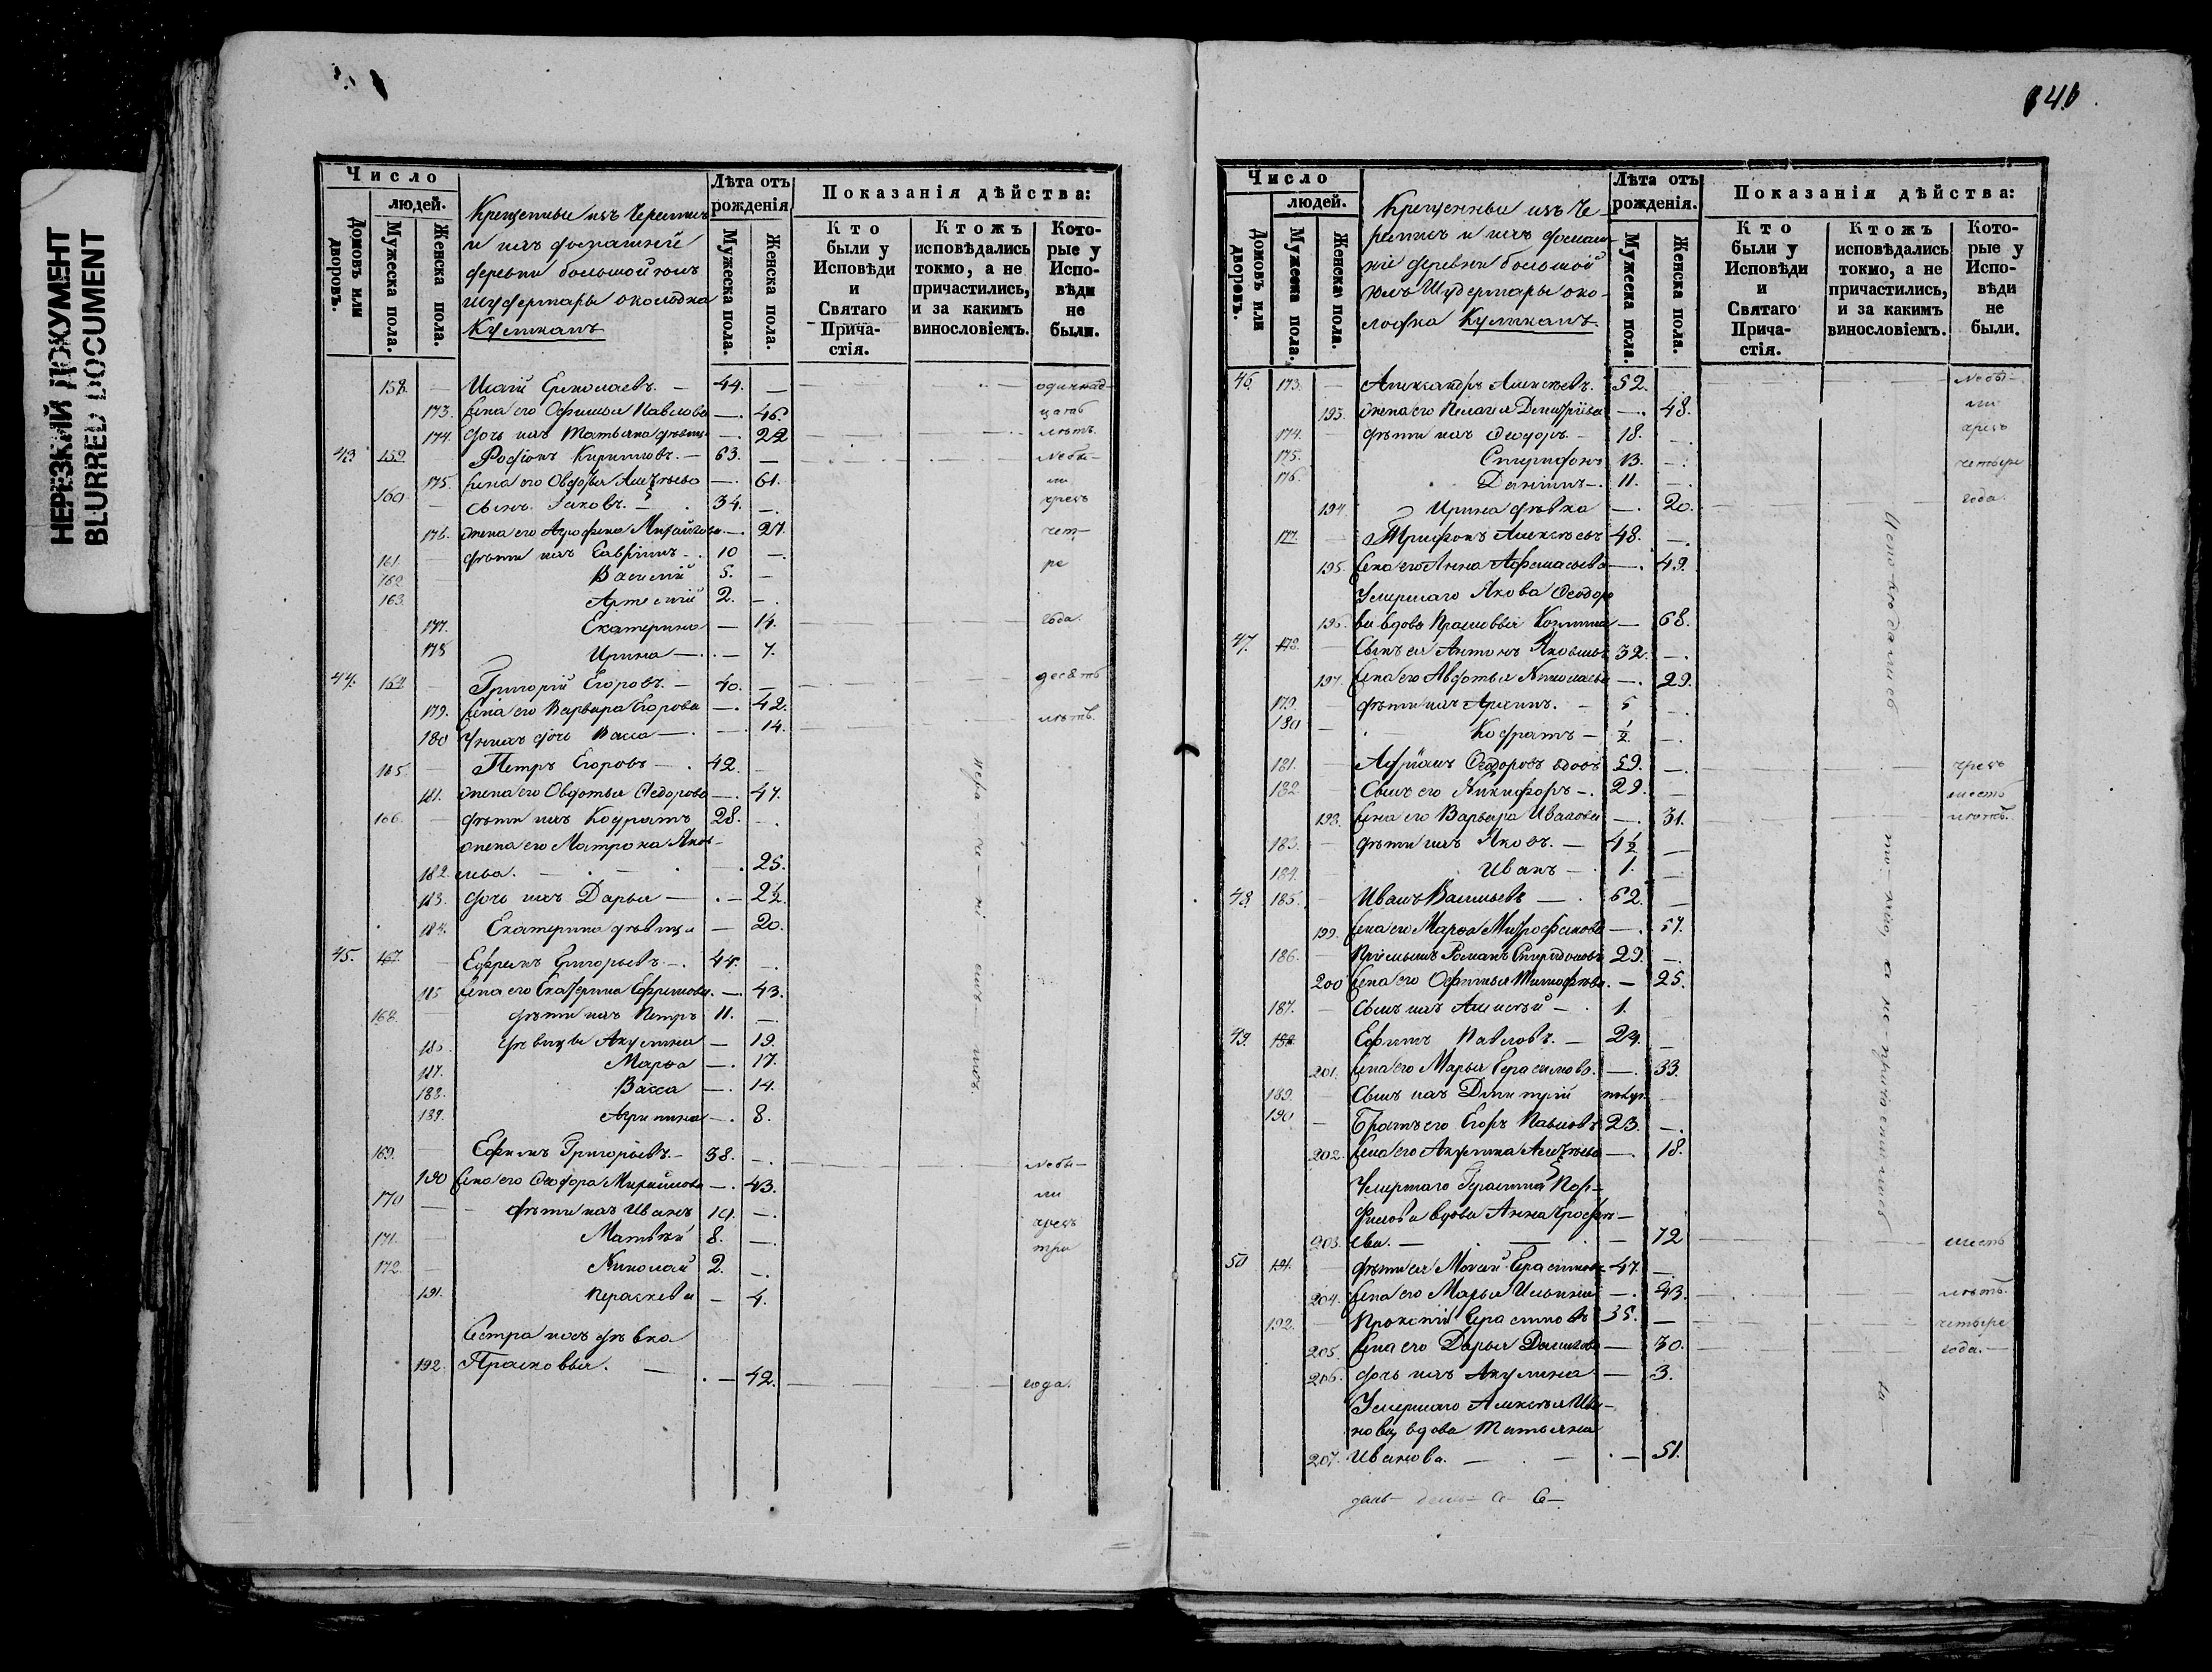 НЕРЕЗКИЙ ДОКУМЕНТ
BLURRED DOCUMENT
Число
людей.
Домовъ или дворовъ.
Мужеска пола.
Женска пола.
Крещеные изъ Черемисъ
и ихъ домашніе
деревни большой Юль
Шудермары околодка
Куликалъ
Лѣта отъ рожденія
Мужеска пола.
Женска пола.
Показанія дѣйства:
Кто были у Исповѣди и Святаго Причастія.
Ктожъ исповѣдались токмо, а не причастились, и за какимъ винословіемъ.
Которые у Исповѣди не были.
158. Ермолаевъ. — 44. — одиннад-
173. жена его Павлова — 46. цать
174. дочь ихъ Татьяна дѣвица — 22 лѣтъ.
43 159. Родіонъ Кириловъ. — 63. — небы-
175. жена его Овдотья Алексѣева — 61. ли
160 сынъ Іаковъ. — 34. — чрезъ
176. жена его Агрофена Михайлова — 27. чет-
161. дѣти ихъ Гавріилъ — 10 — ре
162 Василій 5. —
163. Артемій 2. —
177. Екатерина — 14. года.
178 Ирина — 7.
44. 164 Григорій Егоровъ. — 40. — десять
179. жена его Варвара Егорова — 42.
180 У нихъ дочь Васса — 14. лѣтъ.
165. Петръ Егоровъ — 42. —
181. жена его Овдотья Ѳедорова — 47.
166. дѣти ихъ Кодратъ 28. —
жена его Матрона Яков-
182. лева. — 25.
183. дочь ихъ Дарья — 2½.
184. Екатерина дѣвица — 20.
45. 167. Ефремъ Григорьевъ — 44. —
185 жена его Екатерина Ефремова. — 43.
168. дѣти ихъ Петръ 11. —
186. дѣвицы Акулина — 19.
187. Марѳа — 17.
188. Васса — 14.
189. Агрипина — 8.
169. Ефимъ Григорьевъ. — 38. — небы-
190 жена его Ѳеодора Михайлова — 43. ли
170 дѣти ихъ Иванъ 14. — чрезъ
171. Матвѣй 8. — три
172. Николай 2. —
191. Параскева — 4.
Сестра ихъ дѣвка
192. Прасковья. — 42. года.
140
Число
людей.
Домовъ или дворовъ.
Мужеска пола.
Женска пола.
Крещенные изъ Че-
ремисъ и ихъ домаш-
ніе деревни большой
Юль Шудермары око-
лодка Куликалъ
Лѣта отъ рожденія.
Мужеска пола.
Женска пола.
Показанія дѣйства:
Кто были у Исповѣди и Святаго Причастія.
Ктожъ исповѣдались токмо, а не причастились, и за какимъ винословіемъ.
Которые у Исповѣди не были.
46. 173. Александръ Алексѣевъ. 52. — небы-
193. жена его Пелагея Дмитріева — 48. ли
174. дѣти ихъ Ѳеодоръ — 18. — чрезъ
175. Спиридонъ 13. — четыре
176. Даніилъ — 11. —
194 Ирина дѣвка — 20. года.
177. Трифонъ Алексѣевъ 48. —
195. жена его Анна Афанасьева — 49.
Умершаго Якова Ѳеодоро
196. ва вдова Прасковья Козмина — 68.
47. 178. Сынъ ея Антонъ Яковлевъ 32. —
197. жена его Авдотья Николаева — 29.
179. дѣти ихъ Архипъ. — 5 —
180 Кодратъ — ½. —
181. Адріанъ Ѳеодоровъ вдовъ 59. — чрезъ
182. Сынъ его Никифоръ — 29. — шесть
198. жена его Варвара Иванова — 31. лѣтъ.
183. дѣти ихъ Яковъ. — 4½ —
184. Иванъ — 1. —
48. 185. Иванъ Васильевъ — 62. —
199. жена его Марѳа Митрофанова — 57.
186. Пріемышъ Романъ Спиридоновъ 29. —
200 жена его Офимья Тимофѣева. — 25.
187. Сынъ ихъ Алексѣй — 1. —
49. 188. Ефимъ Павловъ. — 24. —
201. жена его Марья Герасимова. — 33.
189. Сынъ ихъ Димитрій —
190 Братъ его Егоръ Павловъ 23. —
202. жена его Акулина Алексѣева — 18.
Умершаго Герасима Пор-
филова вдова Анна Ерофѣ-
203. ева. — 72 шесть
50 191. дѣти ея Герасимовъ 47. —
204. жена его Марья Ильина — 43. лѣтъ.
192. Герасимовъ 35. — четыре
205. жена его Дарья Данилова — 30. года. —
206. дочь ихъ Акулина — 3.
Умершаго Алексѣя Ива-
нова вдова Татьяна
207. Иванова. — 51.